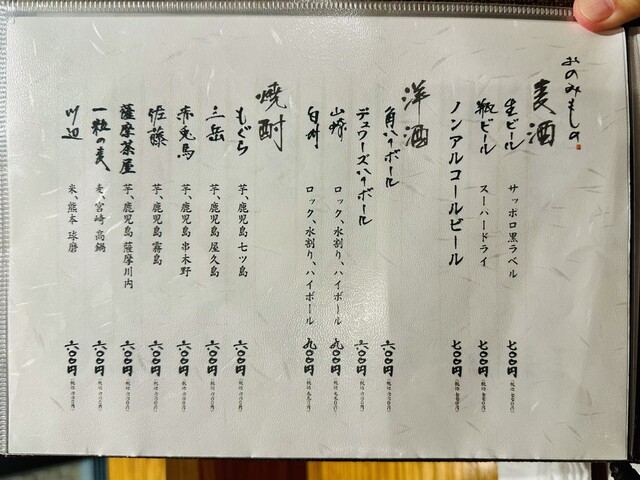 おのみもしの
麦酒
生ビール サッポロ黒ラベル 七〇〇円
瓶ビール スーパードライ 七〇〇円
ノンアルコールビール 七〇〇円
洋酒
角ハイボール 六〇〇円
デュワーズハイボール 六〇〇円
山崎 ロック、水割り、ハイボール 九〇〇円
白州 ロック、水割り、ハイボール 九〇〇円
焼酎
もぐら 芋、鹿児島 七ツ島 六〇〇円
三岳 芋、鹿児島 屋久島 六〇〇円
赤兎馬 芋、鹿児島 串木野 六〇〇円
佐藤 芋、鹿児島 霧島 六〇〇円
薩摩茶屋 芋、鹿児島 薩摩川内 六〇〇円
一粒の麦 麦、宮崎 高鍋 六〇〇円
川辺 米、熊本 球磨 六〇〇円